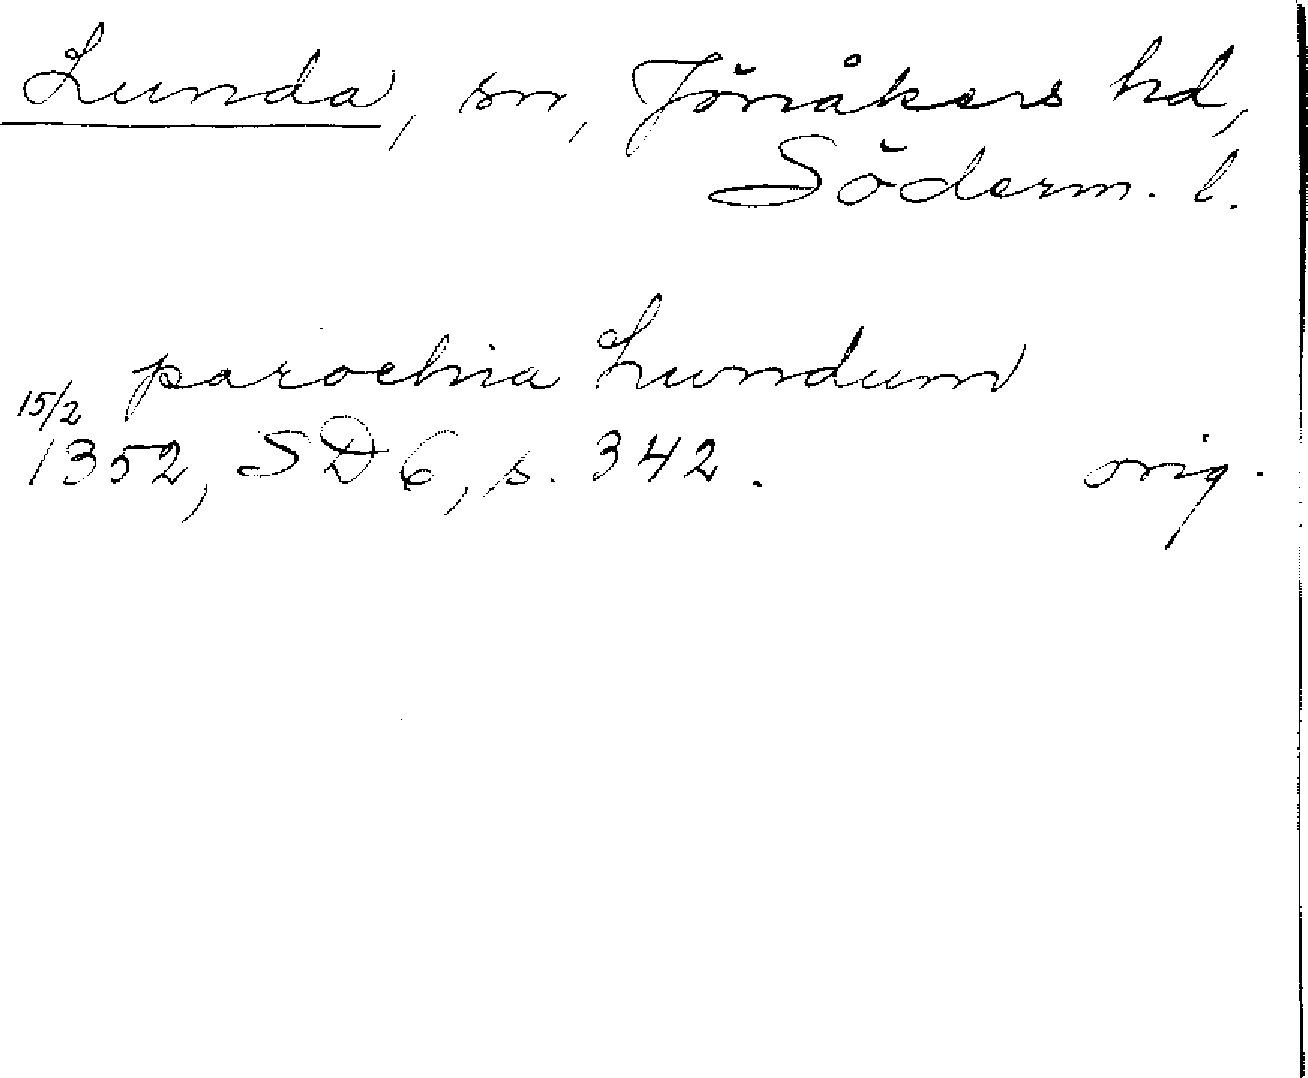 Lunda, sn, Jönåkers hd,
Söderm. l.
parochia Lundum
15/2
1352, SD 6, s. 342. orig.